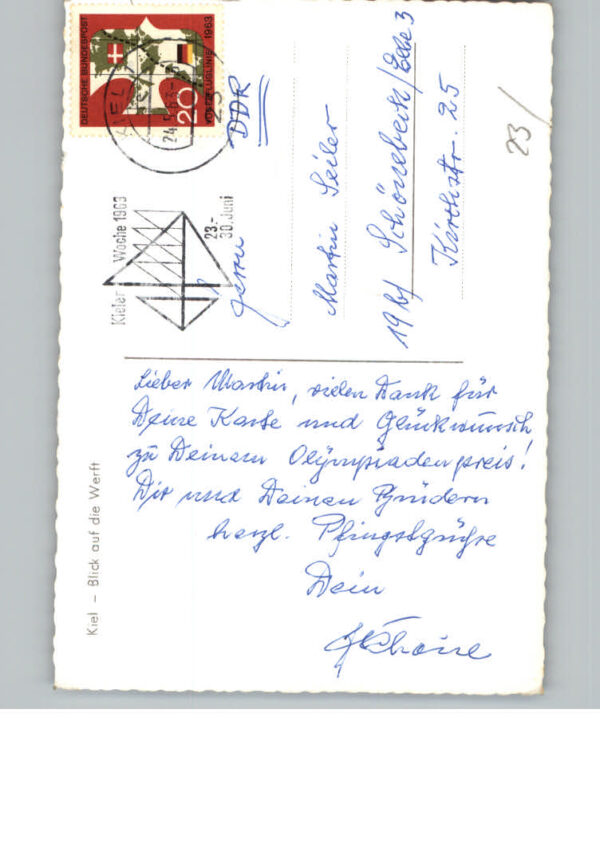 Lieber Martin, vielen Dank für
Deine Karte und Glückwunsch
zu Deinem Olympiadenpreis!
Dir und Deinen Brüdern
herzl. Pfingstgrüße
Dein
Herrn
Martin Seiler
Schönebeck/Elbe 3
Kirchstr. 25
DDR
23/
Kiel – Blick auf die Werft
Kieler Woche 1963
23.-
30. Juni
KIEL
DEUTSCHE BUNDESPOST
VOGELFLUGLINIE 1963
20